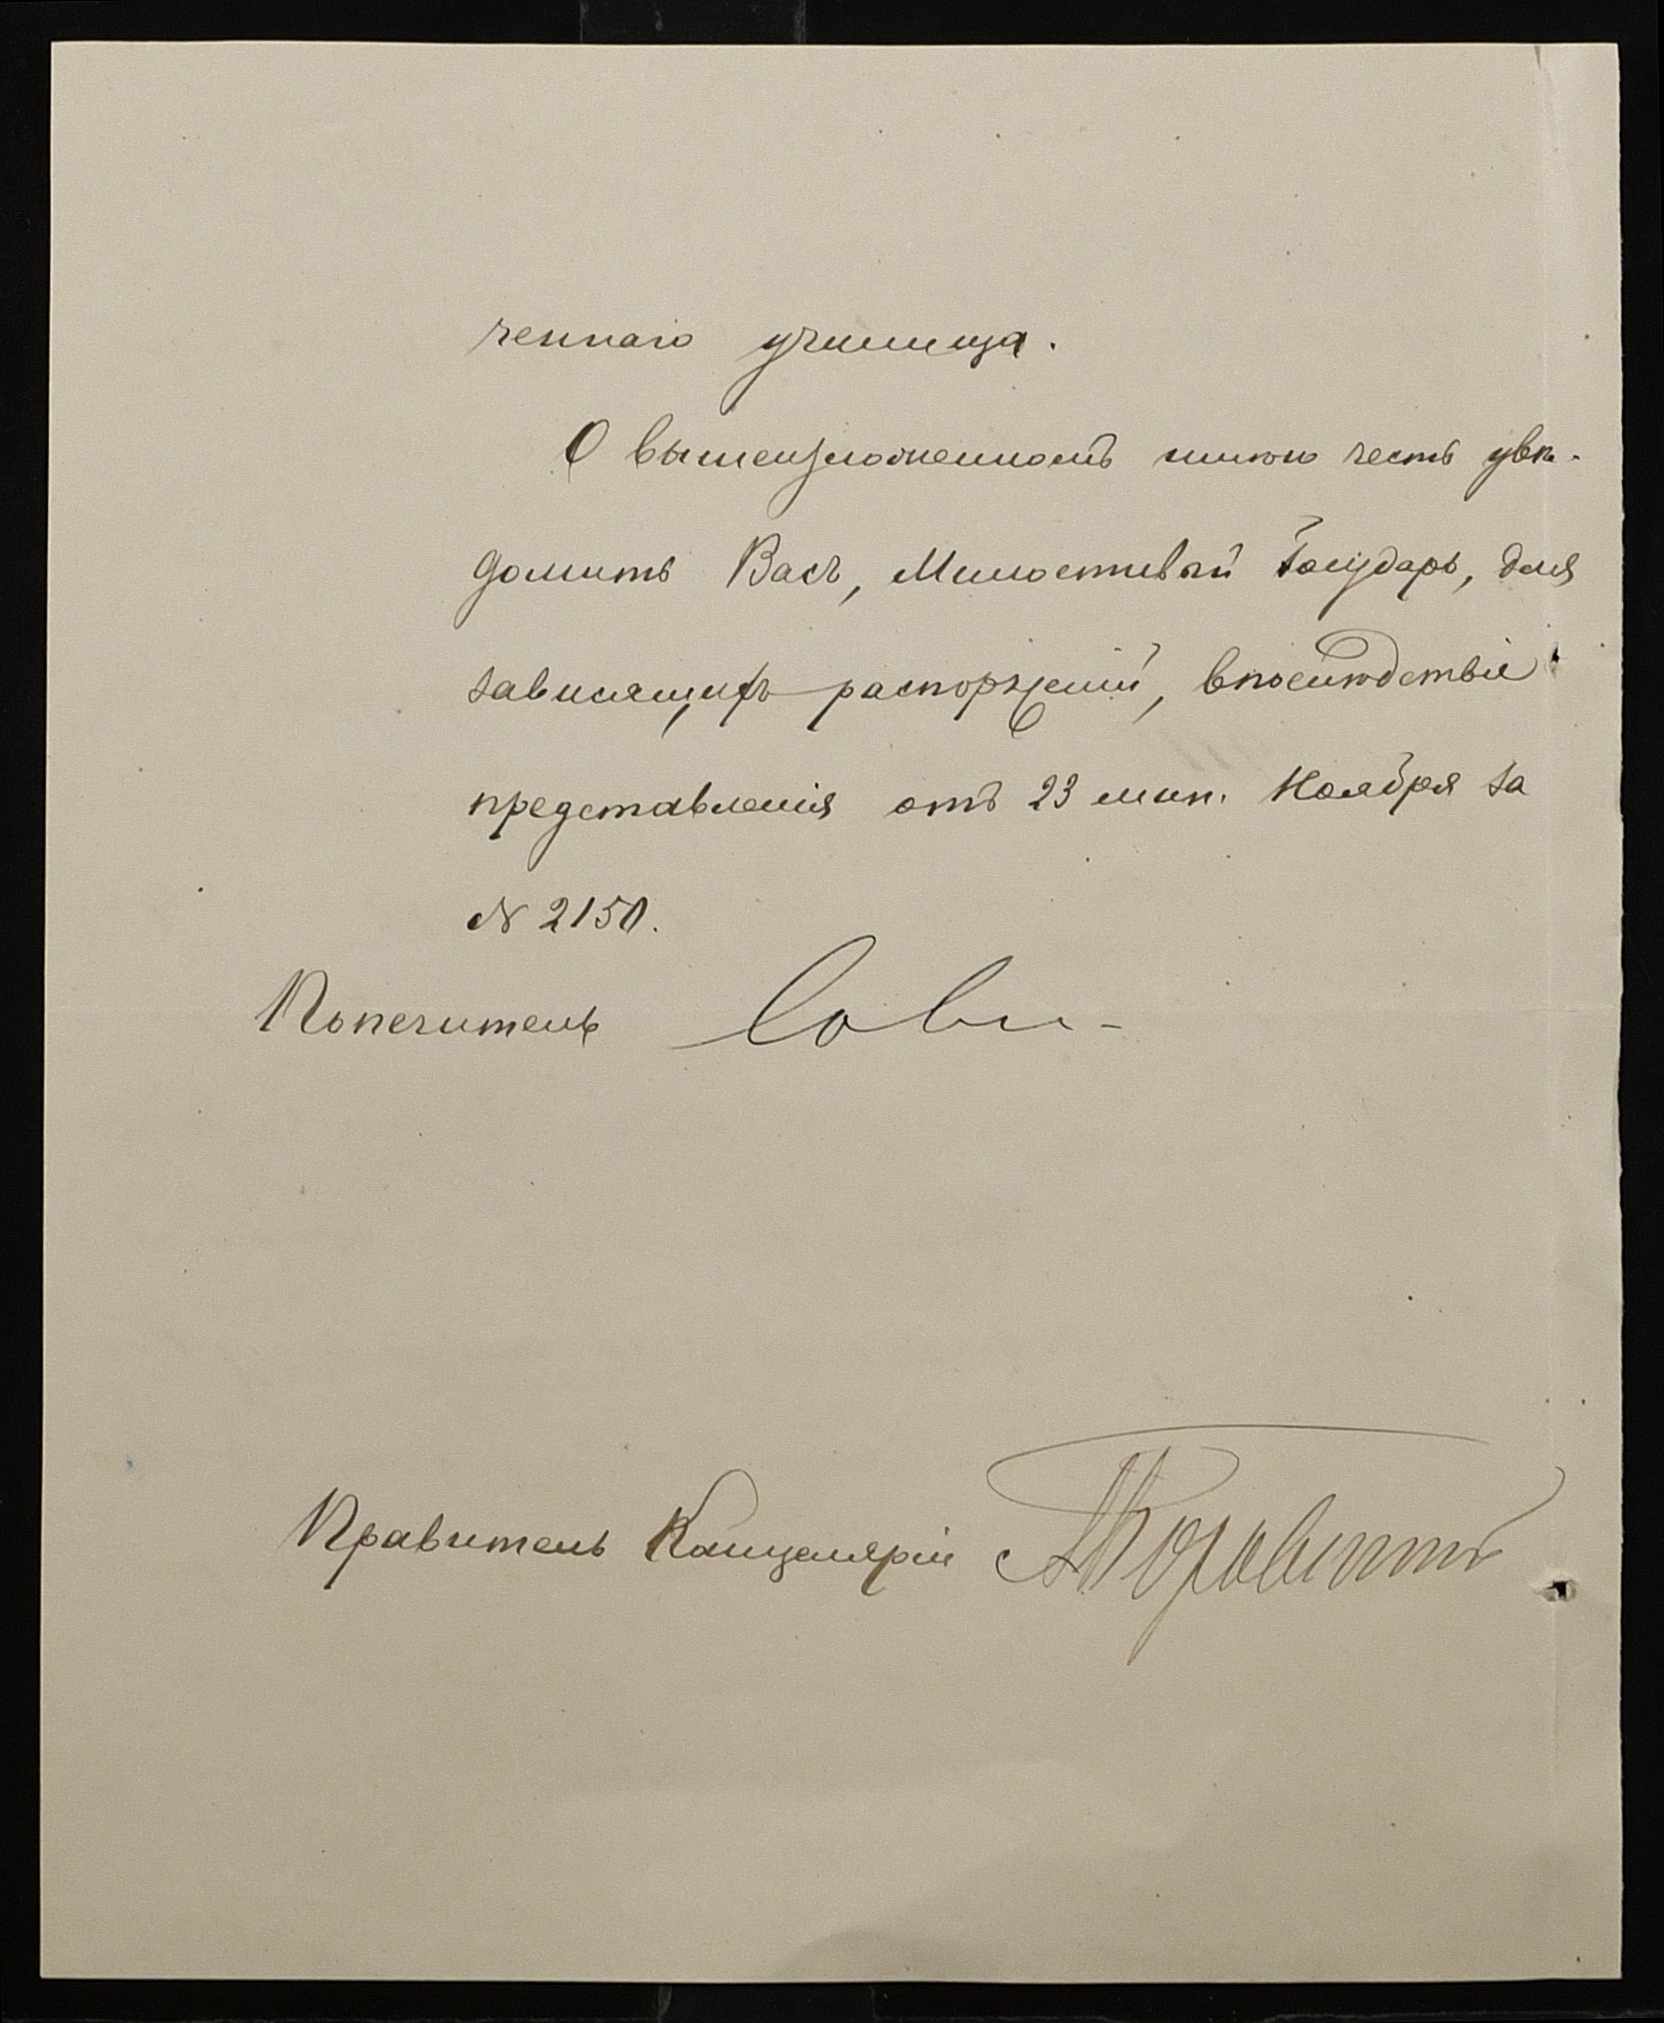 ченнаго училища.
О вышеизложенномъ имѣю честь увѣ-
домить Васъ, Милостивый Государь, для
зависящихъ распоряженій, впослѣдствіе
представленія отъ 23 мин. Ноября за
№ 2150.
Попечитель
Правитель Канцеляріи